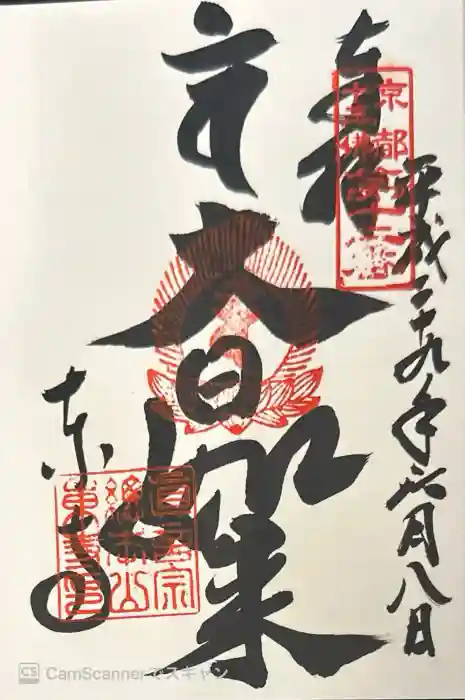 奉拝
平成二十九年六月八日
大日如来
東寺
真言宗
總本山
CS CamScannerでスキャン